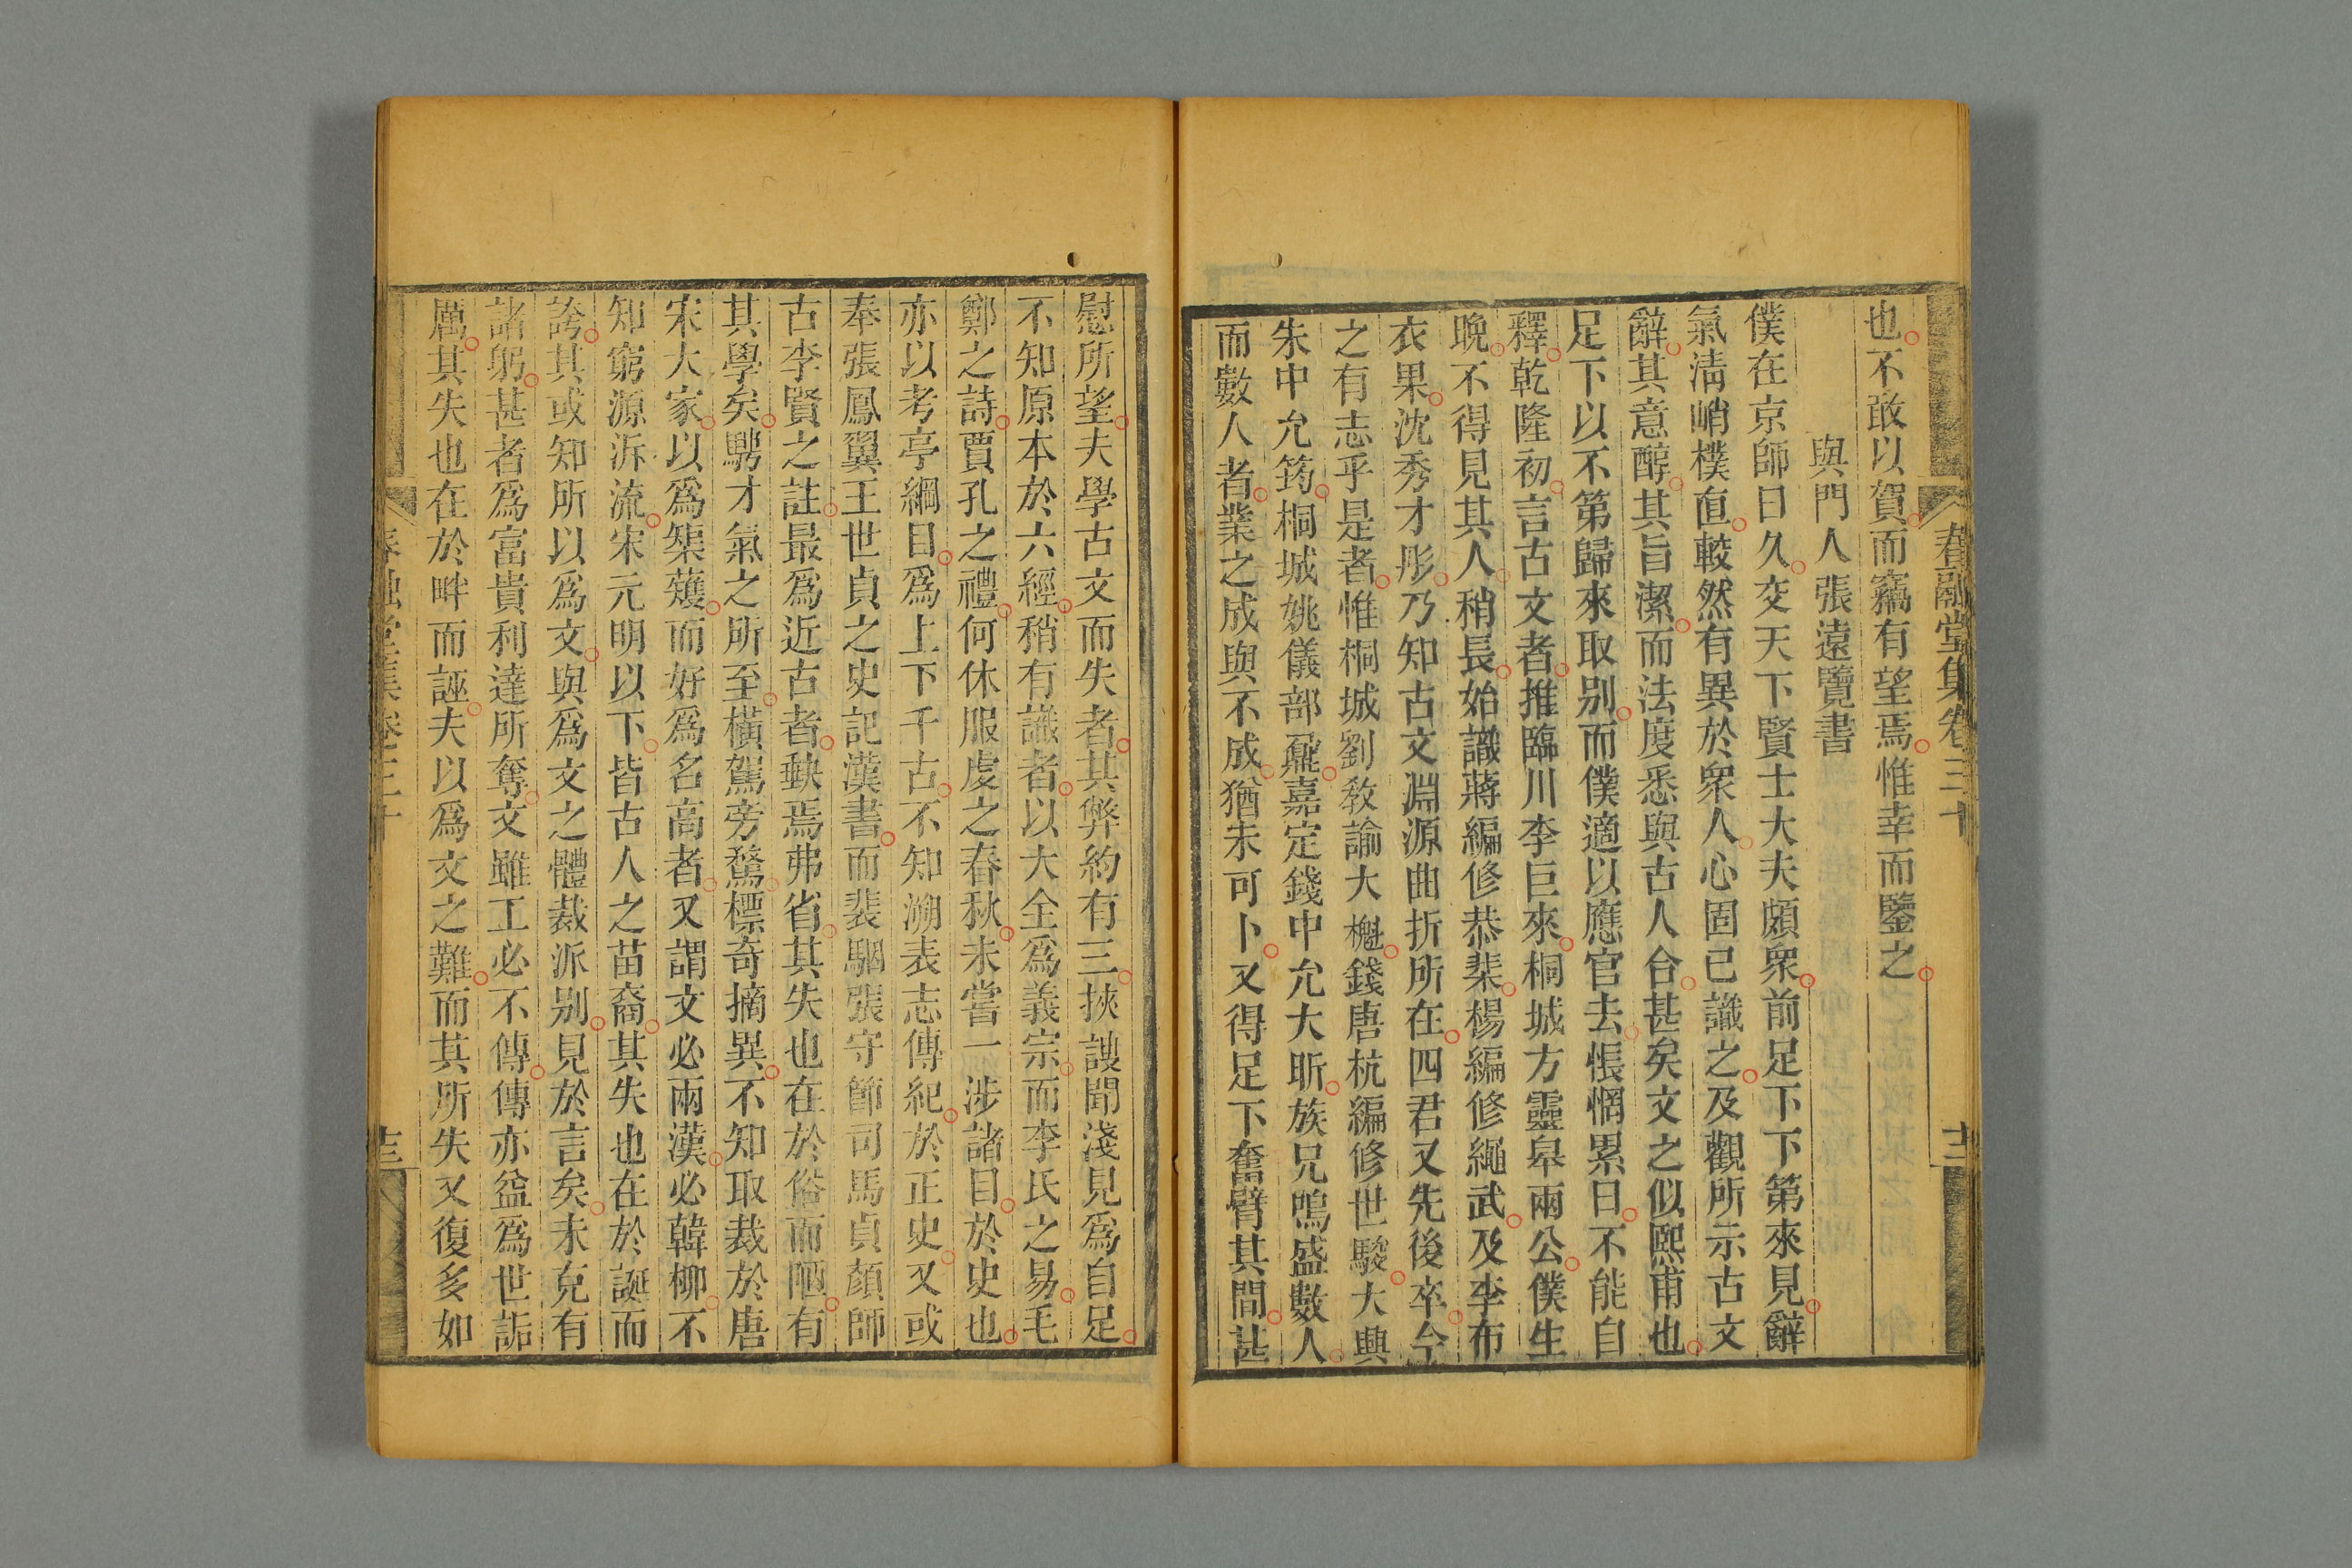 春融堂集卷三十
十二
也不敢以賀而竊有望焉惟幸而鑒之
與門人張遠覽書
僕在京師日久交天下賢士大夫頗衆前足下下第來見辭
氣清峭樸直較然有異於衆人心固已識之及觀所示古文
辭其意醇其旨潔而法度悉與古人合甚矣文之似熙甫也
足下以不第歸來取别而僕適以應官去悵惘累日不能自
釋乾隆初言古文者推臨川李巨來桐城方靈皋兩公僕生
晚不得見其人稍長始識蔣編修恭棐楊編修繩武及李布
衣果沈秀才彤乃知古文淵源曲折所在四君又先後卒今
之有志乎是者惟桐城劉敎諭大櫆錢唐杭編修世駿大興
朱中允筠桐城姚儀部鼐嘉定錢中允大昕族兄鳴盛數人
而數人者業之成與不成猶未可卜又得足下奮臂其間甚
慰所望夫學古文而失者其弊約有三挾謏聞淺見爲自足
不知原本於六經稍有識者以大全爲義宗而李氏之易毛
鄭之詩賈孔之禮何休服虔之春秋未嘗一涉諸目於史也
亦以考亭綱目爲上下千古不知溯表志傳紀於正史又或
奉張鳳翼王世貞之史記漢書而裴駰張守節司馬貞顏師
古李賢之註最爲近古者缺焉弗省其失也在於俗而陋有
其學矣騁才氣之所至橫駕旁騖標奇摘異不知取裁於唐
宋大家以爲榘蒦而好爲名高者又謂文必兩漢必韓柳不
知窮源泝流宋元明以下皆古人之苗裔其失也在於誕而
誇其或知所以爲文與爲文之體裁派别見於言矣未克有
諸躬甚者爲富貴利達所奪文雖工必不傳傳亦益爲世詬
厲其失也在於畔而誣夫以爲文之難而其所失又復多如
春融堂集卷三十
十三